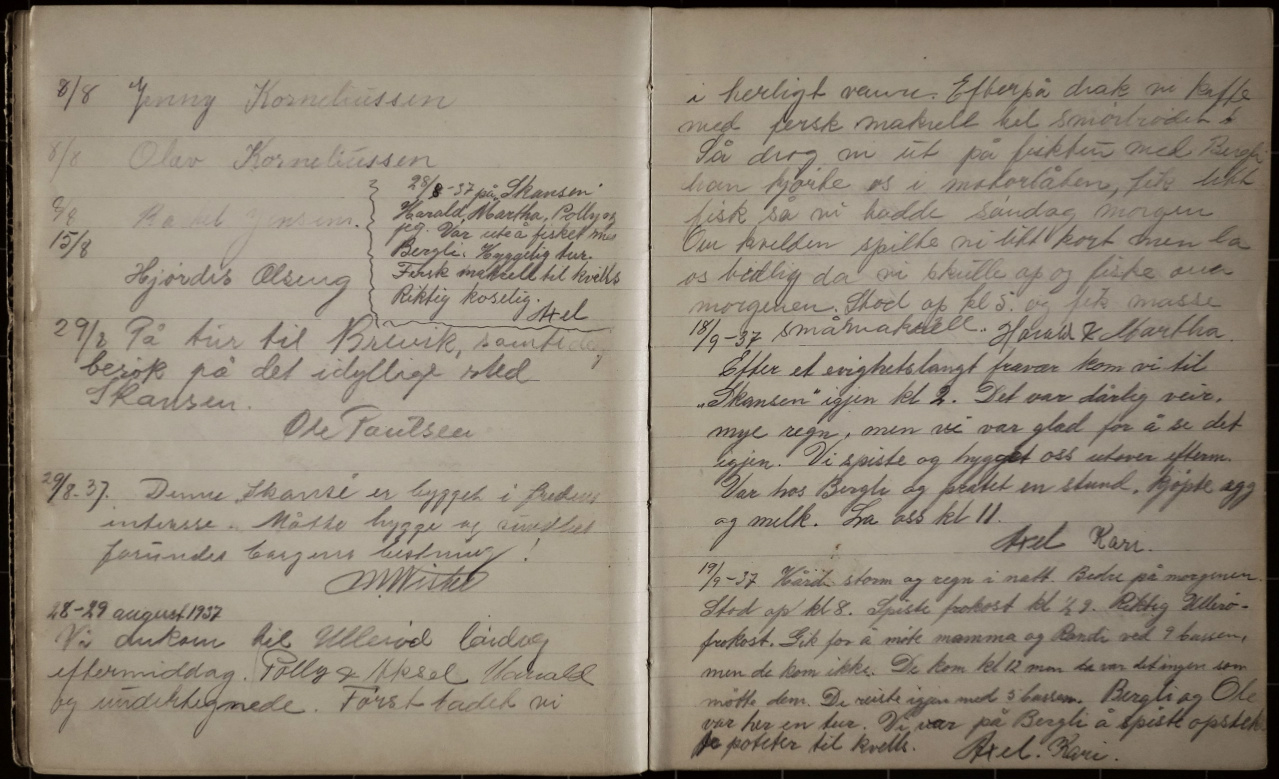 8/8 Jenny Korneliussen
8/8 Olav Korneliussen
Jensen.
15/8
Hjørdis Olseng
28/8-37 på „Skansen"
Harald, Martha, Polly og
jeg. Var ute å fisket med
Bergli. Hyggelig tur.
Fersk makrell til kvells
Riktig koselig.
Axel
29/8 På tur til Brevik, samtidig
besøk på det idyllige sted
Skansen.
Ole Paulsen
29/8-37. Denne Skanse er bygget i fredens
interesse. Måtte hygge og
!
28-29 august 1937
Vi ankom til Ullerød lørdag
eftermiddag. Polly & Aksel Harald
og undertegnede. Først badet vi
i herligt veir. Efterpå drak vi kaffe
med fersk makrell til smørbrødet
Så drog vi ut på fisktur med Bergli
han kjørte os i motorbåten, fik litt
fisk så vi hadde søndag morgen
Om kvelden spilte vi litt kort men la
os bidlig da vi skulle op og fiske om
morgenen. Stod op kl 5. og fik masse
småmakrell. Harald & Martha.
18/9-37
Efter et evighetslangt fravær kom vi til
„Skansen" igjen kl 2. Det var dårlig veir,
mye regn, men vi var glad for å se det
igjen. Vi spiste og hygget oss utover efterm.
Var hos Bergli og pratet en stund, kjøpte egg
og melk. La oss kl 11.
Axel Kari.
19/9-37 Hård storm og regn i natt. Bedre på morgenen.
Stod op kl 8. Spiste frokost kl ½ 9. Riktig Ullerø-
frokost. Gik for å møte mamma og Randi ved 9 bussen,
men de kom ikke. De kom kl 12 men da var det ingen som
møtte dem. De reiste igjen med 5 bussen. Bergli og Ole
var her en tur. Vi var på Bergli å spiste opstekte
poteter til kvells. Axel. Kari.